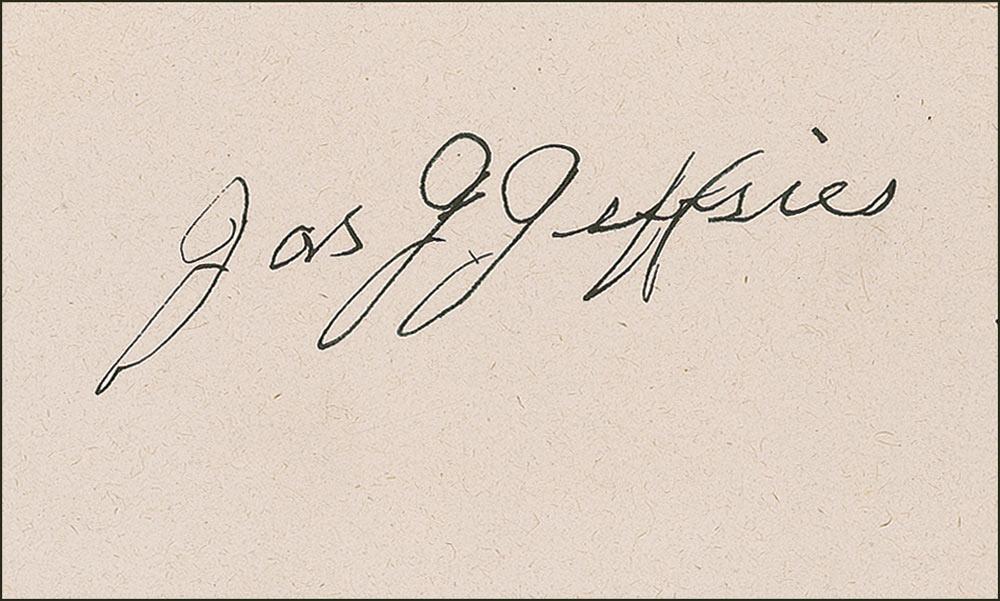 Jas J Jeffries